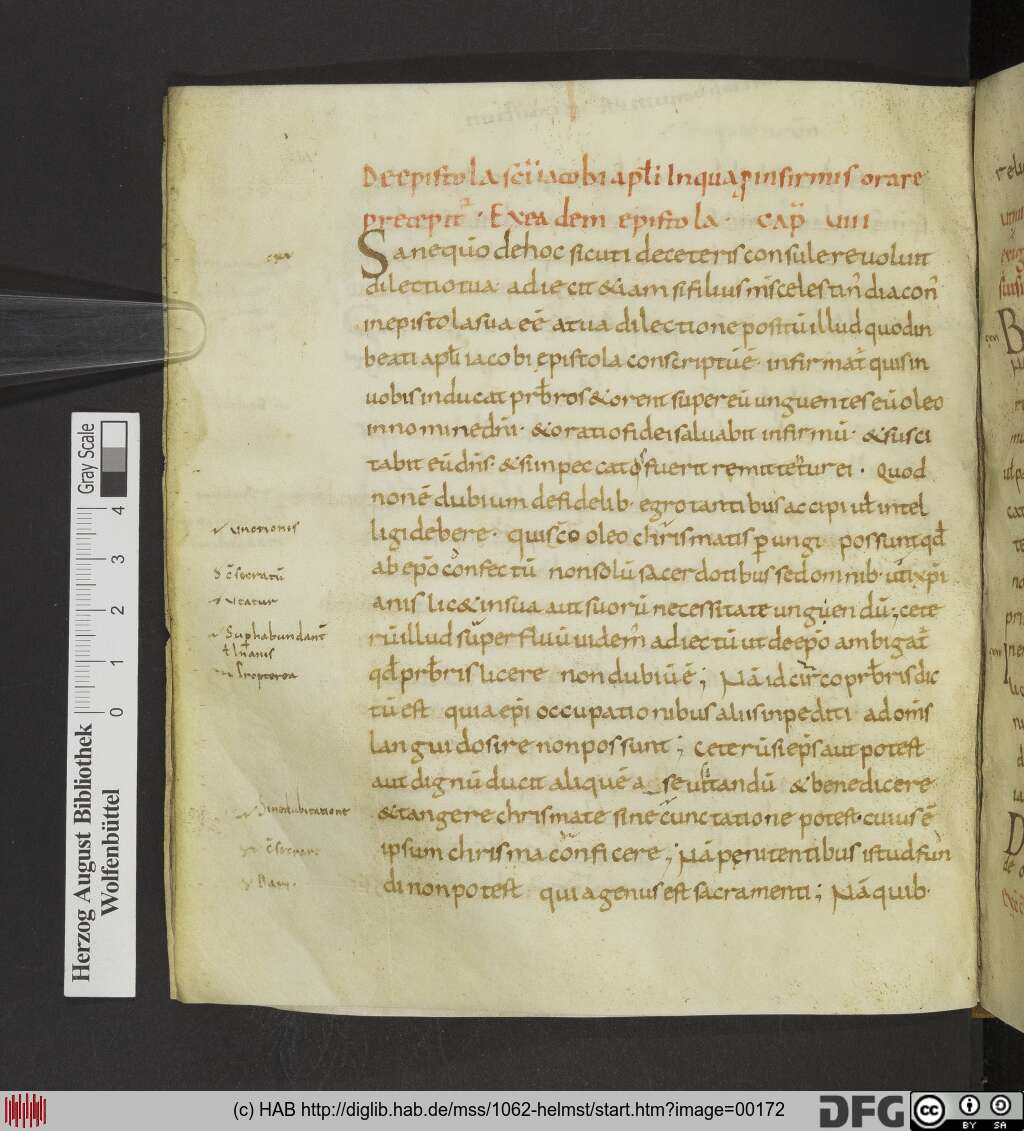 De epistola sc̄i iacobi apłi In qua ꝓ infirmis orare
precepit᷑ · Ex eadem epistola · cap̄ VIIII
Sane qūo de hoc sicuti de ceteris consulere uoluit
dilectio tua· adiecit & iam si filius nr̄s celestin̄ diacon̄
in epistola sua eē a tua dilectione positū illud quod in
beati apłi iacobi epistola conscriptū ē· infirmat᷑ quis in
uobis inducat prb̄ros & orent super eū unguentes eū oleo
in nomine dn̄i· & oratio fidei saluabit infirmū· & susci
tabit eū dn̄s· & si in peccato fuerit remittetur ei · Quod
non ē dubium de fidelib· egrotantibus accipi uł intel
ligi debere· qui sc̄o oleo chrismatis ꝑungi possunt qđ
ab ep̄o confectū non solū sacerdotibus sed omnib· uti xp̄i
anis lic& in sua aut suorū necessitate unguendū; cete
rū illud superfluū uidem̄ adiectū ut de ep̄o ambigat᷑
qđ prb̄ris licere non dubiū ē; Nā idcirco prb̄ris dic
tū est quia ep̄i occupationibus aliis inpediti ad om̄s
languidos ire non possunt; ceterū si ep̄s aut potest
aut dignū ducit aliquē a se uisitandū & benedicere
& tangere chrismate sine cunctatione potest· cuius ē
ipsum chrisma conficere; Nā penitentibus istud fun
di non potest quia genus est sacramenti; Nā quib·
unctionis
c̄secratū
utatur
Suphabundant̄
Propterea
Herzog August Bibliothek
Wolfenbüttel
Gray Scale
0 1 2 3 4
(c) HAB http://diglib.hab.de/mss/1062-helmst/start.htm?image=00172
DFG
cc BY SA